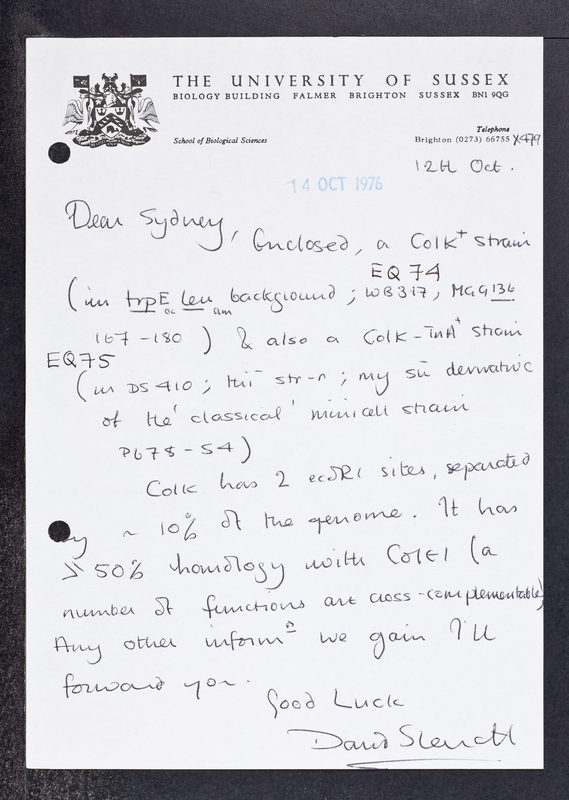 THE UNIVERSITY OF SUSSEX
BIOLOGY BUILDING FALMER BRIGHTON SUSSEX BN1 9QG
School of Biological Sciences
Telephone
Brighton (0273) 66755 X479
12th Oct.
14 OCT 1976
Dear Sydney,
Enclosed, a ColK+ strain
EQ 74
(in trpE leu background; WB317, MGG 136
oc am
167-180) & also a ColK-TnA+ strain
EQ75
(in DS 410; thi- str-r; my su- derivative
of the 'classical' minicell strain
P678-54)
ColK has 2 ecoRI sites, separated
by ~ 10% of the genome. It has
≥ 50% homology with ColE1 (a
number of functions are cross-complementable)
Any other informn we gain I'll
forward you.
Good Luck
David Sherratt